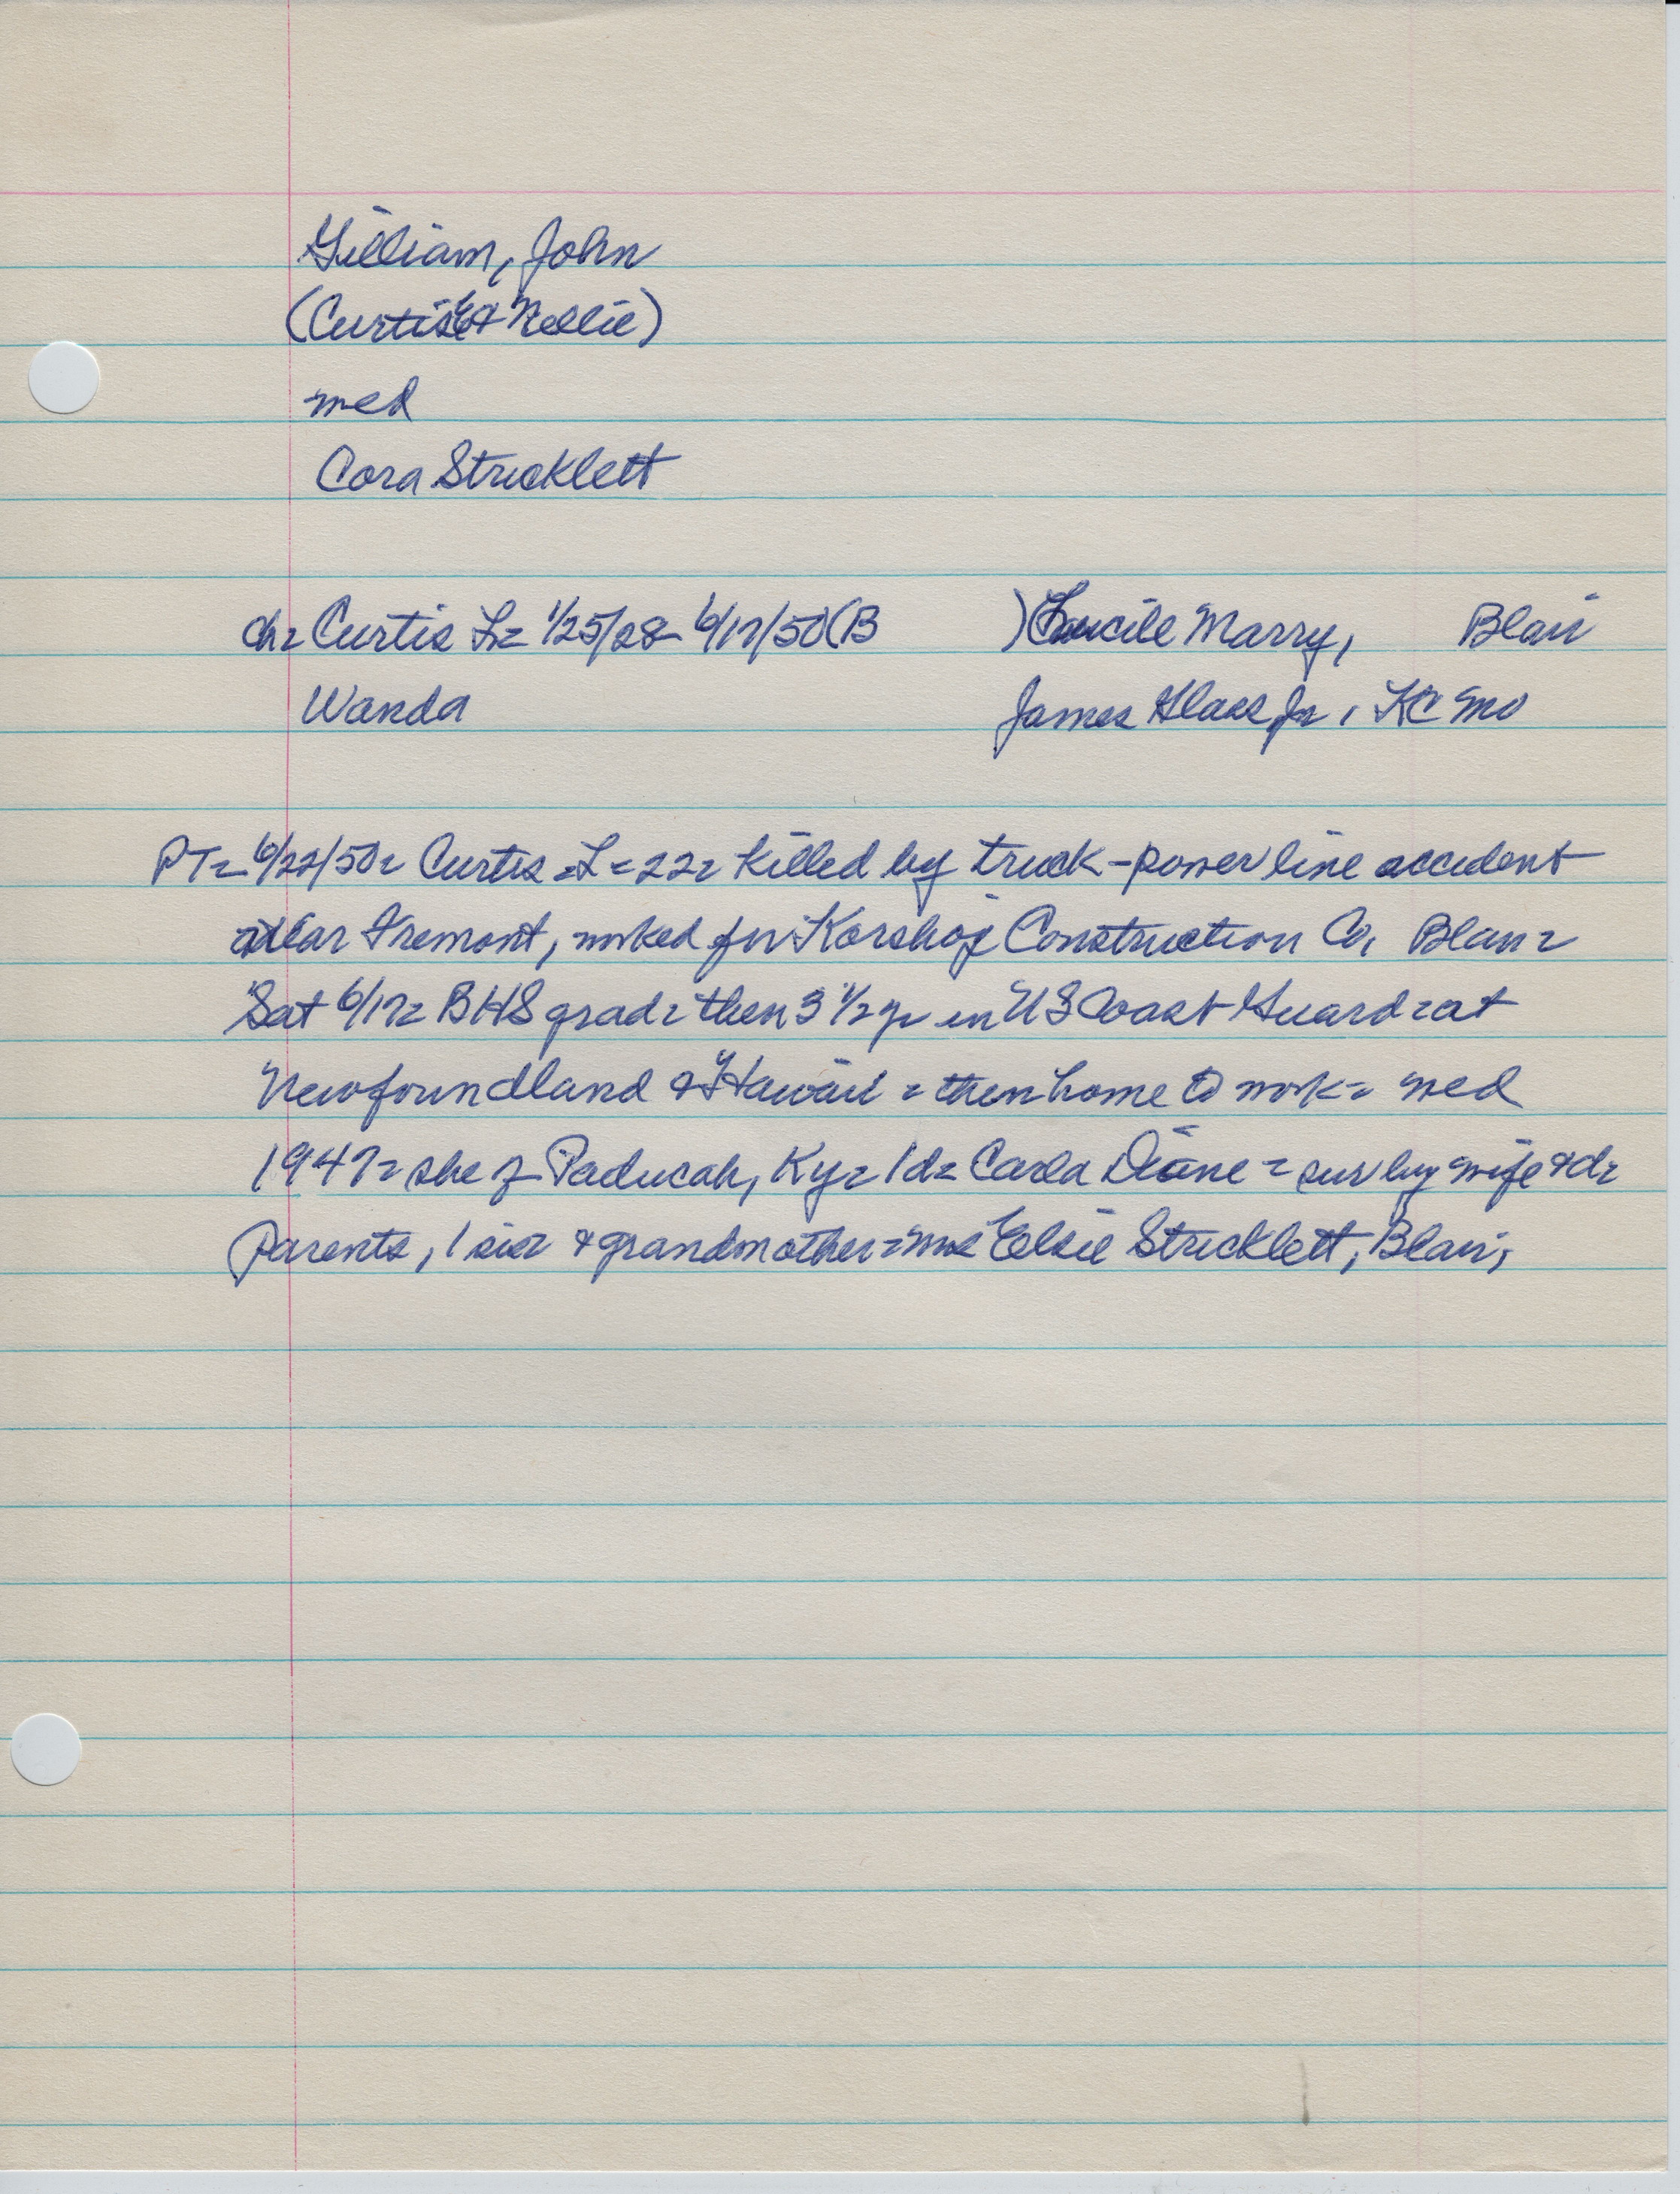 Gilliam, John
(Curtis E & Nellie)
med
Cora Stricklett
ch= Curtis L= 1/25/28- 6/17/50 (B ) Lucile Marry, Blair
Wanda James Glass Jr, KC Mo
PT= 6/22/50= Curtis =L= 22= killed by truck-power line accident
near Fremont, worked for Korshoj Construction Co, Blair=
Sat 6/17= BHS grad= then 3 1/2 yr in US Coast Guard= at
Newfoundland & Hawaii = then home to work= med
1947= she of Paducah, Ky= 1d= Carla Diane = sur by wife & d=
parents, 1 sis= & grandmother= Mrs Elsie Stricklett, Blair,